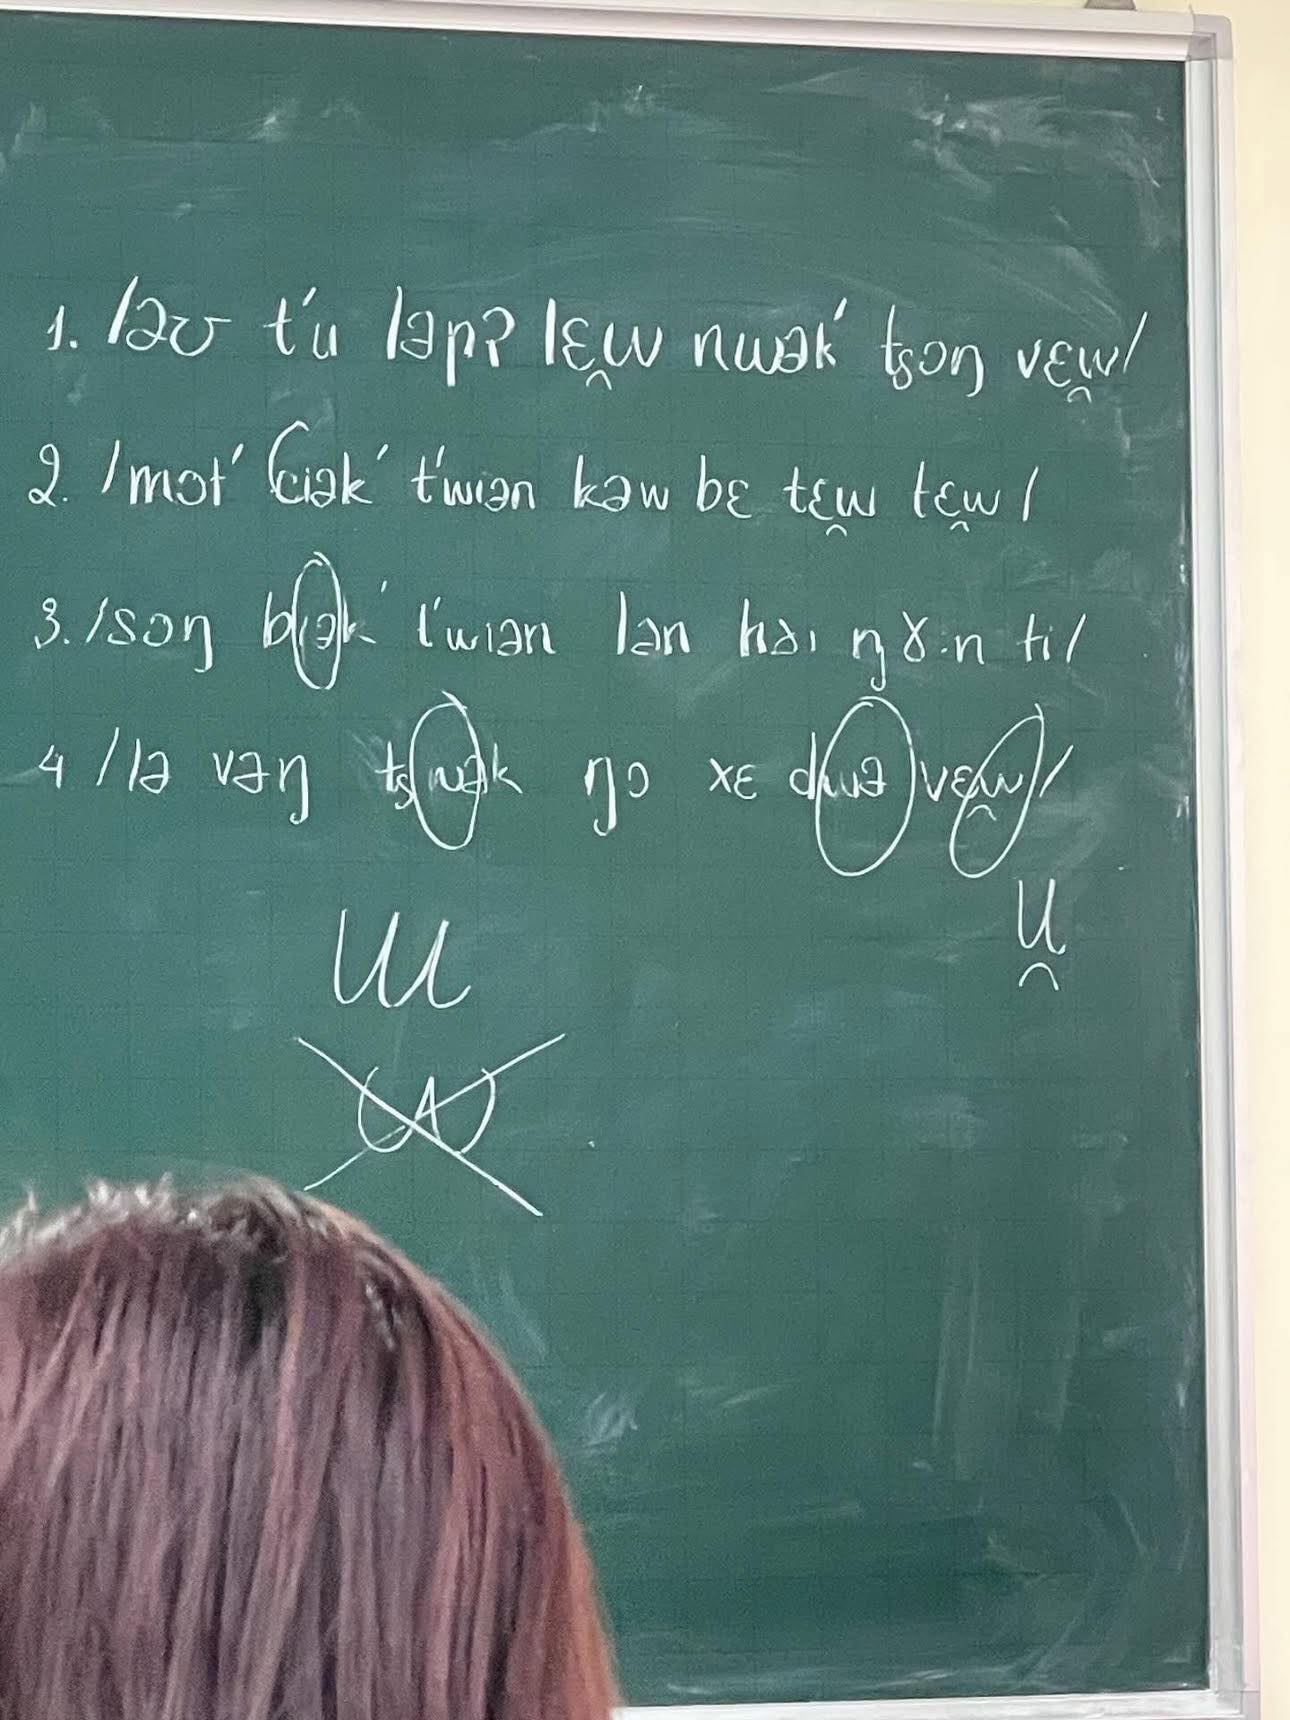 1. /əʊ t'u ləpʔ lɛɯ̯ nɯək' ʈʂɔŋ vɛɯ̯/
2. /mot' ciək' t'wiən kəw bɛ tɛɯ̯ tɛɯ̯/
3. /sɔŋ biək' t'wiən lən həi ŋɤ.n ti/
4 /lə vəŋ ʈʂɯək ŋɔ xɛ dɯə vɛɯ̯/
u̯
ɯ